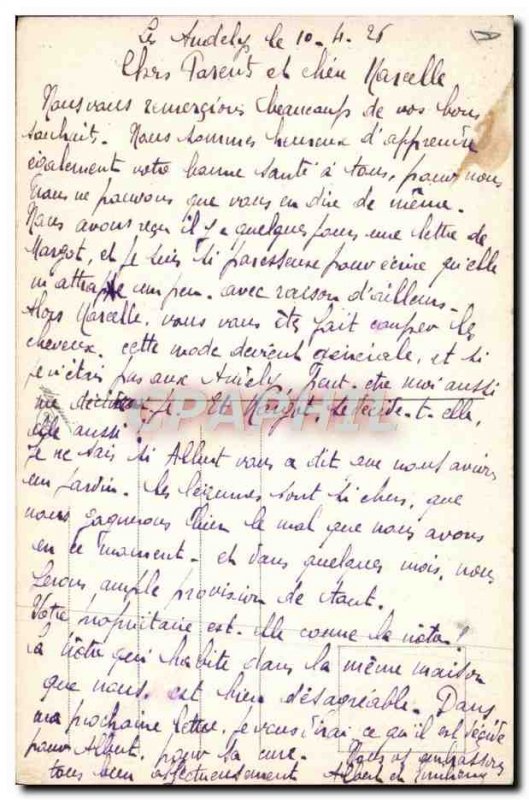 Les Andelys le 10-4-26
Chers Parents et chère Marcelle,
Nous vous remercions beaucoup de vos bons
souhaits. Nous sommes heureux d'apprendre
également votre bonne santé à tous, pour nous
nous ne pouvons que vous en dire de même.
Nous avons reçu il y a quelques jours une lettre de
Margot, et je suis si paresseuse pour écrire qu'elle
m'attrape un peu. avec raison d'ailleurs.
Alors Marcelle, vous vous êtes fait couper les
cheveux. cette mode devient générale, et si
je n'étais pas aux Andelys Peut-être moi aussi
me déciderai-je. Et Margot, se décide-t-elle,
elle aussi?
Je ne sais si Albert vous a dit que nous avions
un jardin. les légumes sont si chers, que
nous gagnerons bien le mal que nous avons
en ce moment. et dans quelques mois, nous
serons ample provision de tout.
Votre propriétaire est-elle comme la nôtre?
la nôtre qui habite dans la même maison
que nous. est bien désagréable. Dans
ma prochaine lettre, je vous dirai ce qu'il est décidé
pour Albert, pour sa cure. Nous vs embrassons
tous bien affectueusement Albert et
CPAPHIL